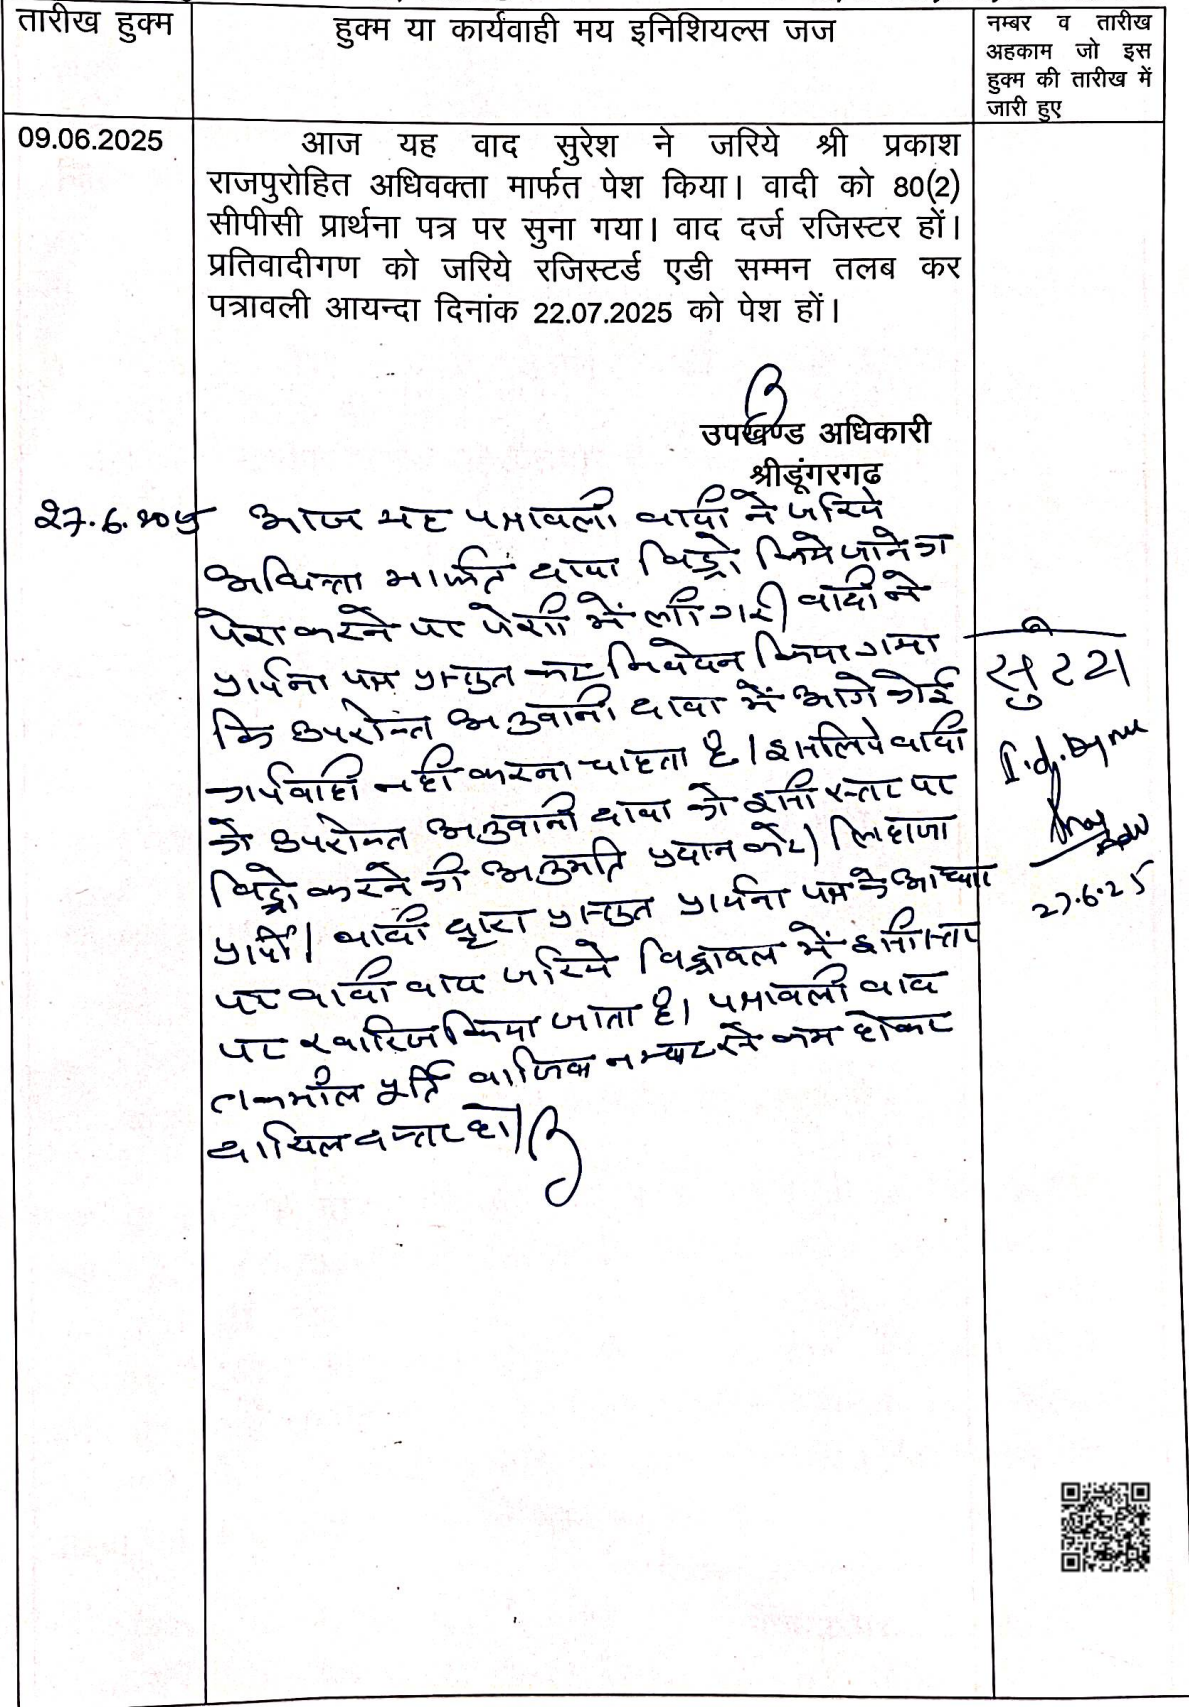 तारीख हुक्म
हुक्म या कार्यवाही मय इनिशियल्स जज
नम्बर व तारीख
अहकाम जो इस
हुक्म की तारीख में
जारी हुए
09.06.2025
आज यह वाद सुरेश ने जरिये श्री प्रकाश
राजपुरोहित अधिवक्ता मार्फत पेश किया। वादी को 80(2)
सीपीसी प्रार्थना पत्र पर सुना गया। वाद दर्ज रजिस्टर हों।
प्रतिवादीगण को जरिये रजिस्टर्ड एडी सम्मन तलब कर
पत्रावली आयन्दा दिनांक 22.07.2025 को पेश हों।
उपखण्ड अधिकारी
श्रीडूंगरगढ
27.6.2025 आज यह पत्रावली वादी ने जरिये
अधिवक्ता मार्फत दावा विड्रो किये जाने का
पेश करने पर पेशी में ली गई। वादी ने
प्रार्थना पत्र प्रस्तुत कर निवेदन किया गया
कि उपरोक्त अनुवानी दावा में आगे कोई
कार्यवाही नहीं करना चाहता है। इसलिये वादी
को उपरोक्त अनुवानी दावा को इसी स्तर पर
विड्रो करने की अनुमति प्रदान करें। लिहाजा
प्रार्थी। वादी द्वारा प्रस्तुत प्रार्थना पत्र के आधार
पर वादी वाद जरिये विड्रावल में इसी स्तर
पर खारिज किया जाता है। पत्रावली बाद
तकमील पूर्ति वाजिब नम्बर से कम होकर
दाखिल दफ्तर हो।
सुरेश
27.6.25